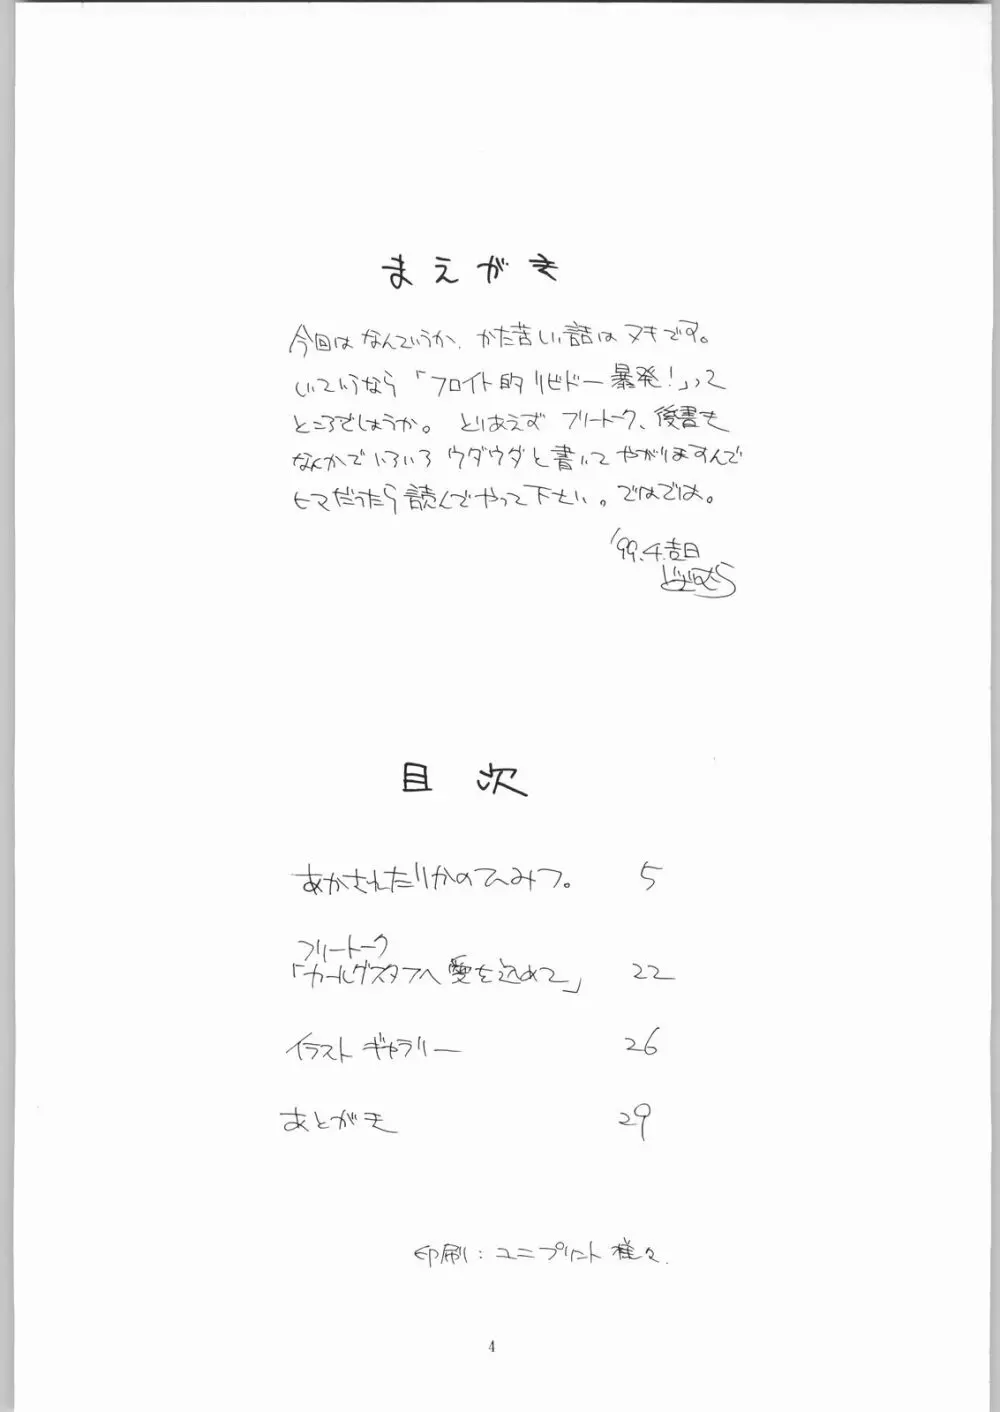 まえがき
今回はなんていうか、かた苦しい話はヌキです。
いっていうなら「フロイト的リビドー暴発!」って
ところでしょうか。とりあえずフリートーク、後書も
なんかでいろいろウダウダと書いてやがりますんで
ヒマだったら読んでやって下さい。ではでは。
'99.4.吉日
目次
あかされたりかのひみつ。 5
フリートーク
「カールグスタフへ愛を込めて」 22
イラストギャラリー 26
あとがき 29
印刷:ユニプリント様々.
4